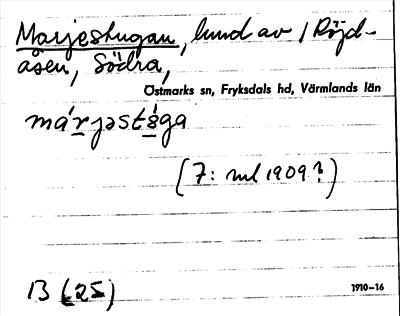 Marjestugan, lund av / Röjd-
åsen, Södra,
Östmarks sn, Fryksdals hd, Värmlands län
márjəstǵga
(7: ml 1909?)
B (25)
1910-16